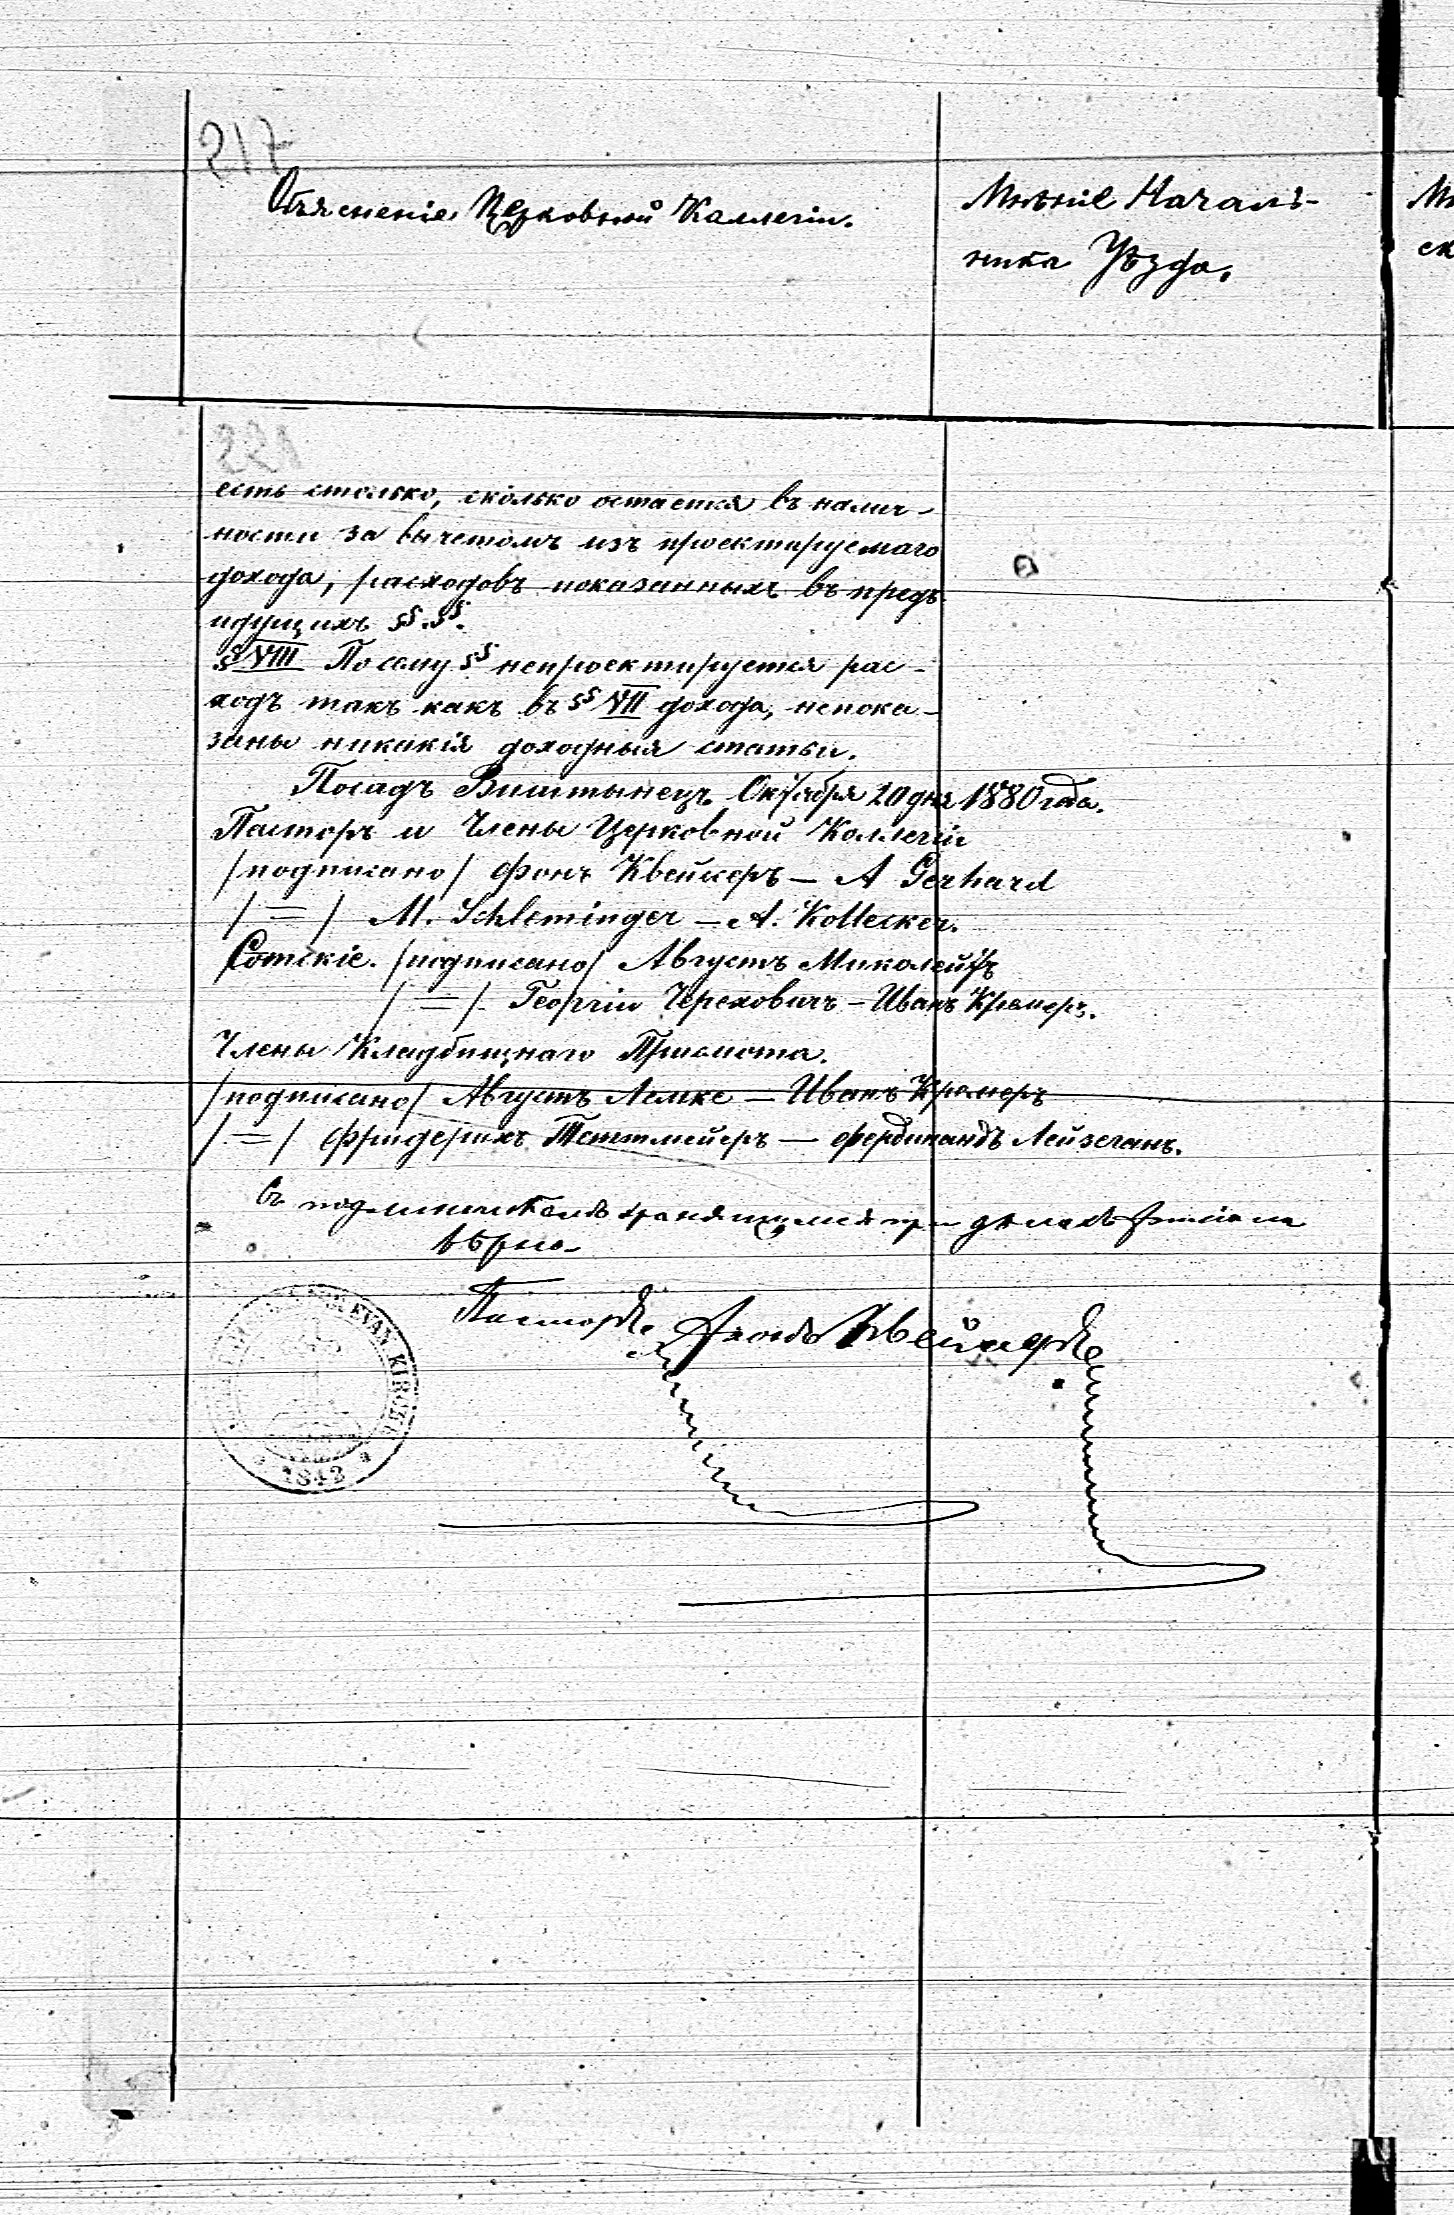 217
Объясненіе Церковной Коллегіи.
Мнѣніе Началь-
ника Уѣзда.
221
есть столько, сколько остается въ налич-
ности за вычетомъ изъ проектируемаго
дохода, расходовъ показанныхъ въ предъ-
идущихъ §§.§§.
§ VIII По сему §§ непроектируется рас-
ходъ такъ какъ въ §§ VII дохода, непока-
заны никакія доходныя статьи.
Посадъ Виштынецъ Октября 20 дня 1880 года.
Пасторъ и Члены Церковной Коллегіи
/подписано/ фонъ Квейсеръ — A Gerhard
/ = / M. Schleminger — A.
Сотскіе. /подписано/ Августъ
/ = / Георгій Череховичъ — Иванъ Кремеръ.
Члены Кладбищнаго Присмота.
/подписано/ Августъ Лемке — Иванъ Кремеръ
/ = / Фридерихъ Теттмейеръ — Фердинандъ Лейзеганъ.
Съ подлинникомъ хранящимся при дѣлахъ
вѣрно.
Пасторъ. фонъ Квейсеръ
EVAN. KIRCHE
1842